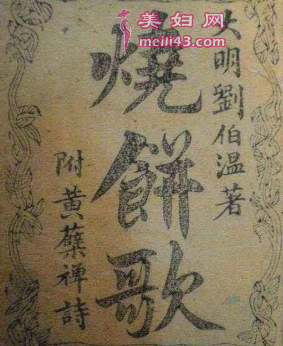 美妇网
meili43.com
大明劉伯温著
燒餅歌
附黃蘗禅詩